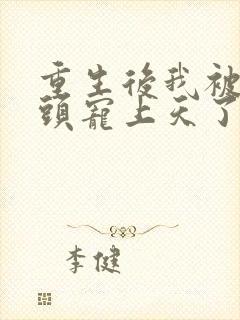 重生後我被
頭寵上天了
李健